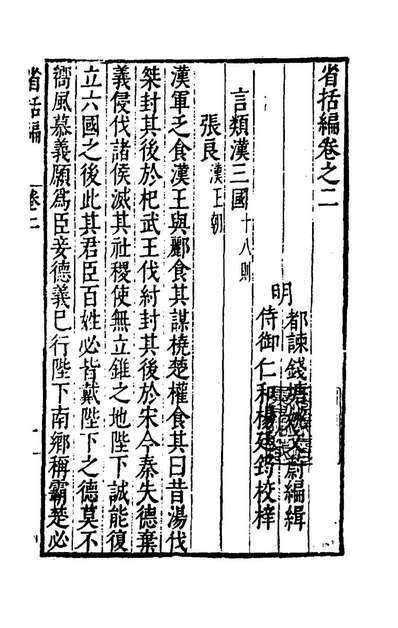 省括編卷之二
明
都諫錢塘姚文蔚編緝
侍御仁和楊廷筠校梓
言類漢三國十八則
張良漢王朝
漢軍乏食漢王與酈食其謀橈楚權食其曰昔湯伐
桀封其後於杞武王伐紂封其後於宋今秦失德棄
義侵伐諸侯滅其社稷使無立錐之地陛下誠能復
立六國之後此其君臣百姓必皆戴陛下之德莫不
嚮風慕義願為臣妾德義已行陛下南鄉稱霸楚必
省括編
卷二
一